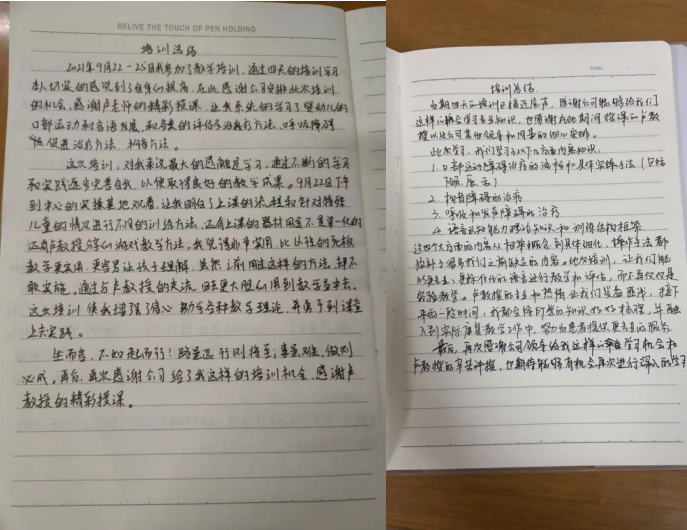 RELIVE THE TOUCH OF PEN HOLDING
培训总结
2021年9月22-25日我参加了教学培训，通过四天的培训学习
本人切实的感觉到了自身的提高，在此感谢公司安排此次培训
的机会，感谢卢老师的精彩授课，让我系统的学习了婴幼儿的
口部运动和言语发展，和各类的评估与治疗方法，呼吸障碍
促进治疗方法，构音方法。
这次培训，对我来说最大的感触是学习，通过不断的学习
和实践逐步完善自我，以便取得良好的教学成果。9月22日下午
到中心的实操基地观看，让我明白了上课的流程和针对特殊
儿童的情况进行不同的训练方法，还有上课的器材用全不是第一化的
还有卢教授分享的游戏教学方法，我觉得非常实用，比以往的死板
教学更实用，更容易让孩子理解，虽然之前用过这样的方法，却不
敢实施，通过与卢教授的交流，回去更大胆的用到教学当中去。
这次培训使我增强了信心，勤学各种教学理论，再落予到课堂
上去实践。
坐而言，不如起而行！路虽远，行则将至；事虽难，做则
必成，再后，再次感谢公司给了我这样的培训机会，感谢卢
教授的精彩授课。
培训总结
为期四天的培训已接近尾声，感谢公司能够给我们
这样的机会学习专业知识，也感谢在此期间授课的卢教
授以及公司其他领导和同事的细心安排。
此次学习，我们学习了以下几方面内容知识：
1. 口部运动障碍治疗的法和具体实操手法（包括
下颌、唇、舌）
2. 构音障碍的治疗
3. 呼吸和发声障碍的治疗
4. 语言认知能力理论知识和训练结构框架
这四个大方面的内容从相关概念到具体细化、操作手法都
弥补了很多我们之前缺乏的内容。此次培训，让我们能
以更专业、更标准化的语言进行教学和评估，而不再仅仅是
实验教学。卢教授的专业和热情让我们获益匪浅，接下
来的一段时间，我都会将所学的知识好好梳理，并融
入到实际康复教学工作中，努力为患者提供更专业的服务。
最后，再次感谢公司领导给我这样的学习机会和
卢教授的辛苦讲授，也期待能够有机会再次进行深入的学习